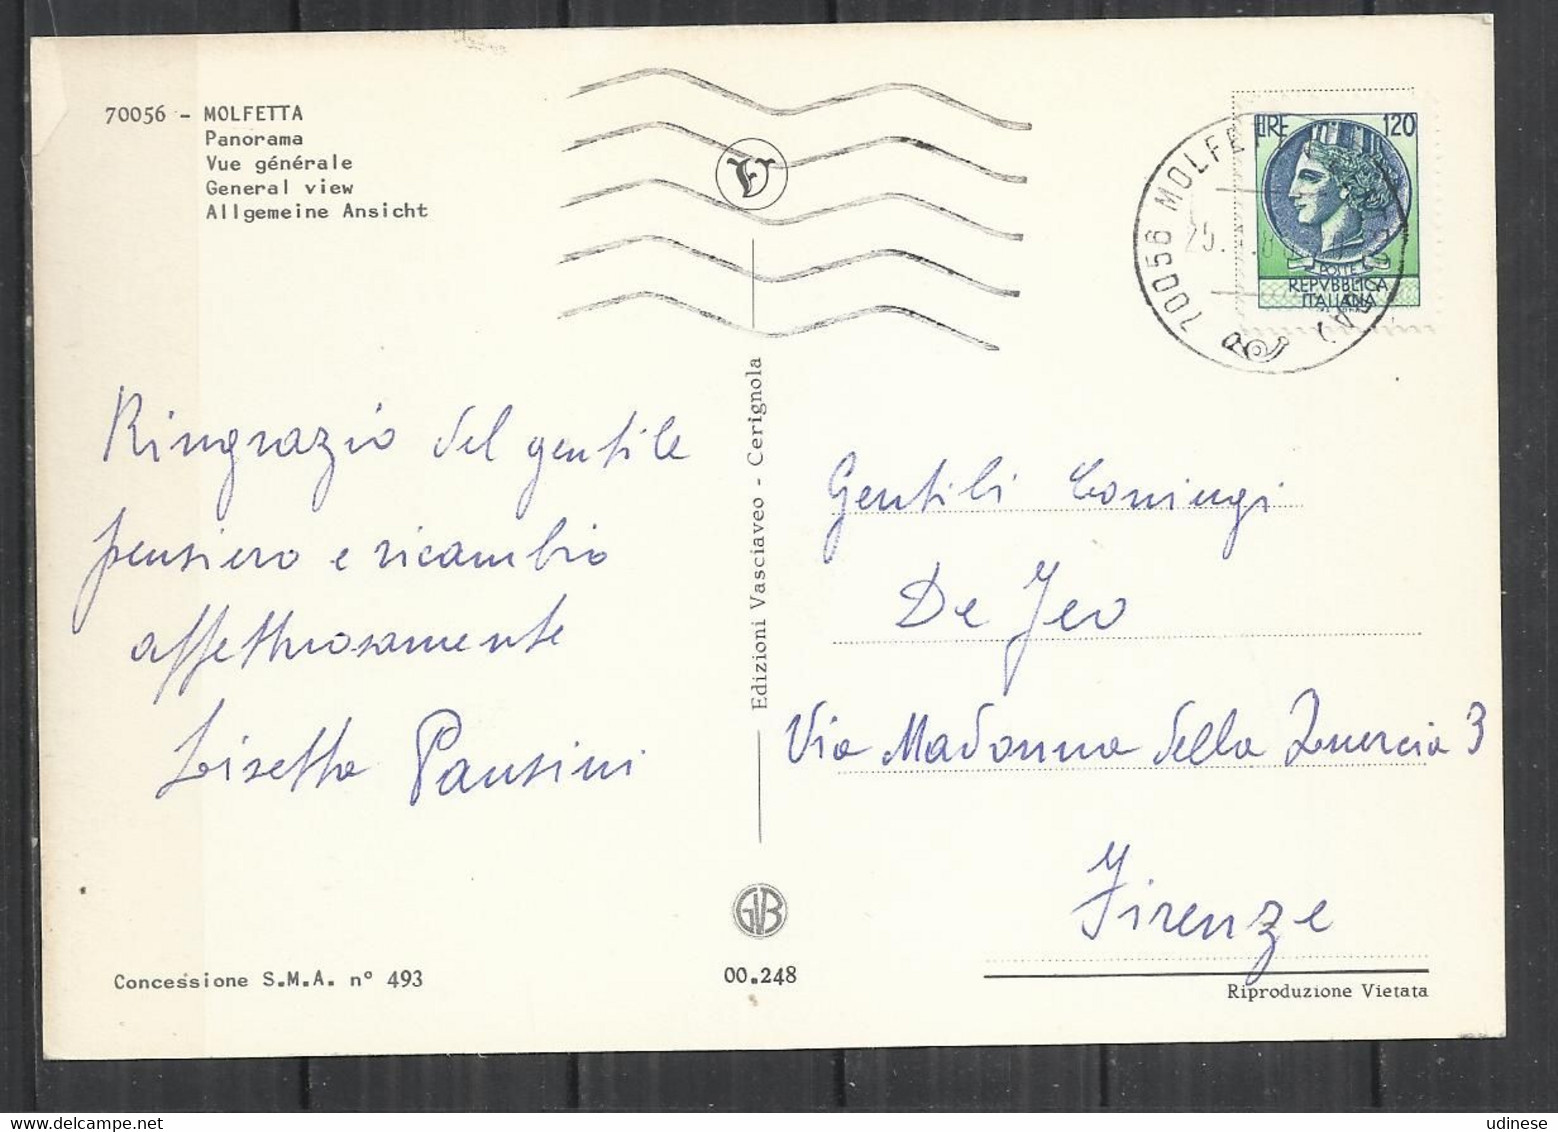 70056 - MOLFETTA
Panorama
Vue générale
General view
Allgemeine Ansicht
LIRE 120
POSTE
REPVBBLICA
ITALIANA
70056 MOLFETTA (BA)
Ringrazio del gentile
pensiero e ricambio
affettuosamente
Lisetta Pansini
Edizioni Vasciaveo - Cerignola
Gentili Coniugi
De Jeo
Via Madonna della Quercia 3
Firenze
GVB
Concessione S.M.A. n° 493
00.248
Riproduzione Vietata
udinese